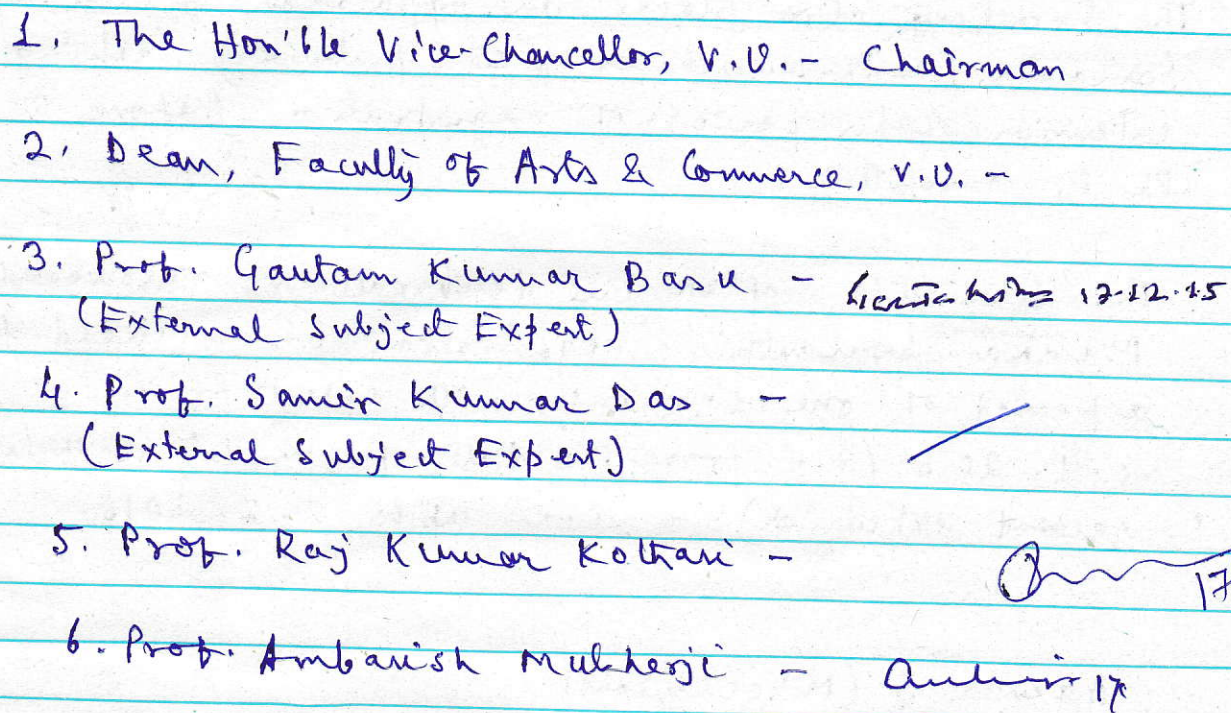 1. The Hon'ble Vice-Chancellor, V.U. - Chairman
2. Dean, Faculty of Arts & Commerce, V.U. -
3. Prof. Gautam Kumar Basu - 17.12.15
(External Subject Expert)
4. Prof. Samir Kumar Das -
(External Subject Expert)
5. Prof. Raj Kumar Kothari - 17
6. Prof. Ambarish Mukherji - 17